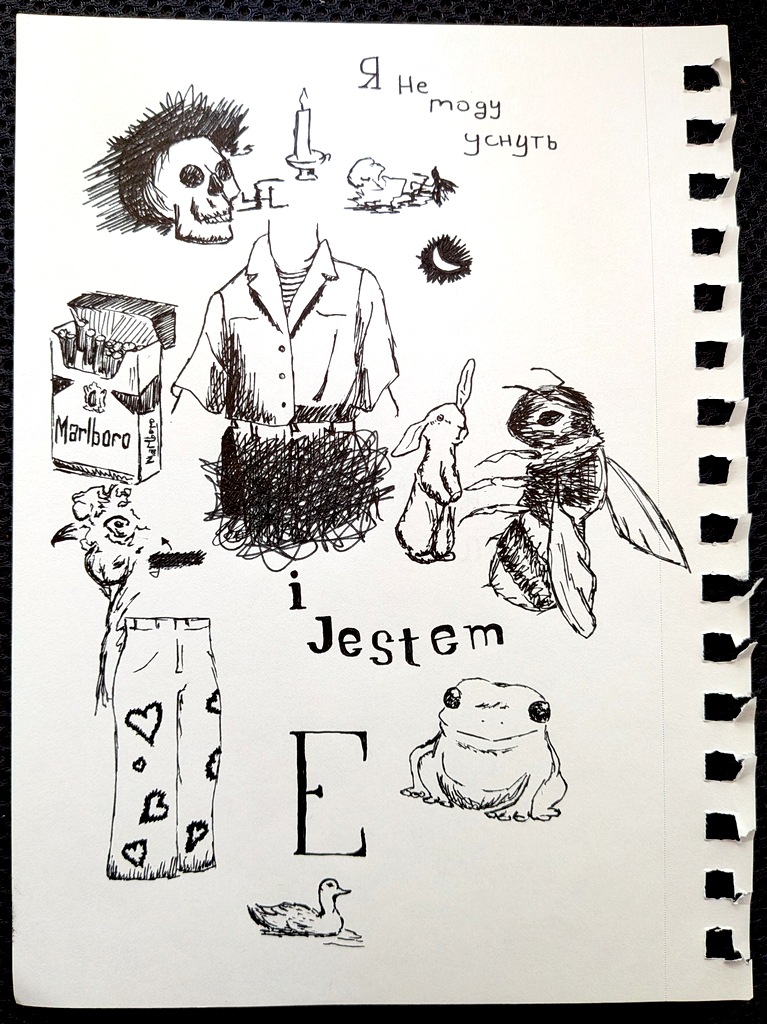 Я не
моду
уснуть
Marlboro
Marlboro
i
Jestem
E